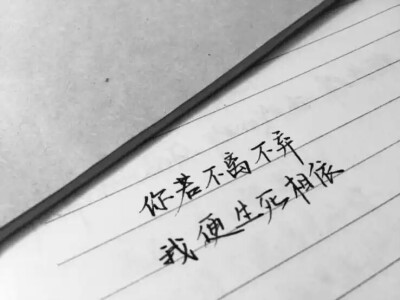 你若不离不弃
我便生死相依